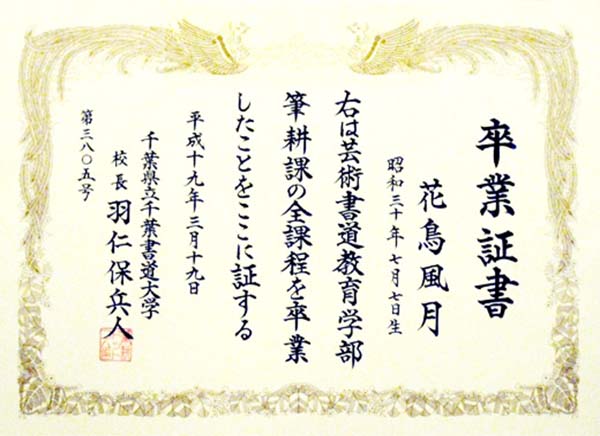 卒業証書
花鳥風月
昭和三十年七月七日生
右は芸術書道教育学部
筆耕課の全課程を卒業
したことをここに証する
平成十九年三月十九日
千葉県立千葉書道大学
校長 羽仁保兵人
第三八〇五号